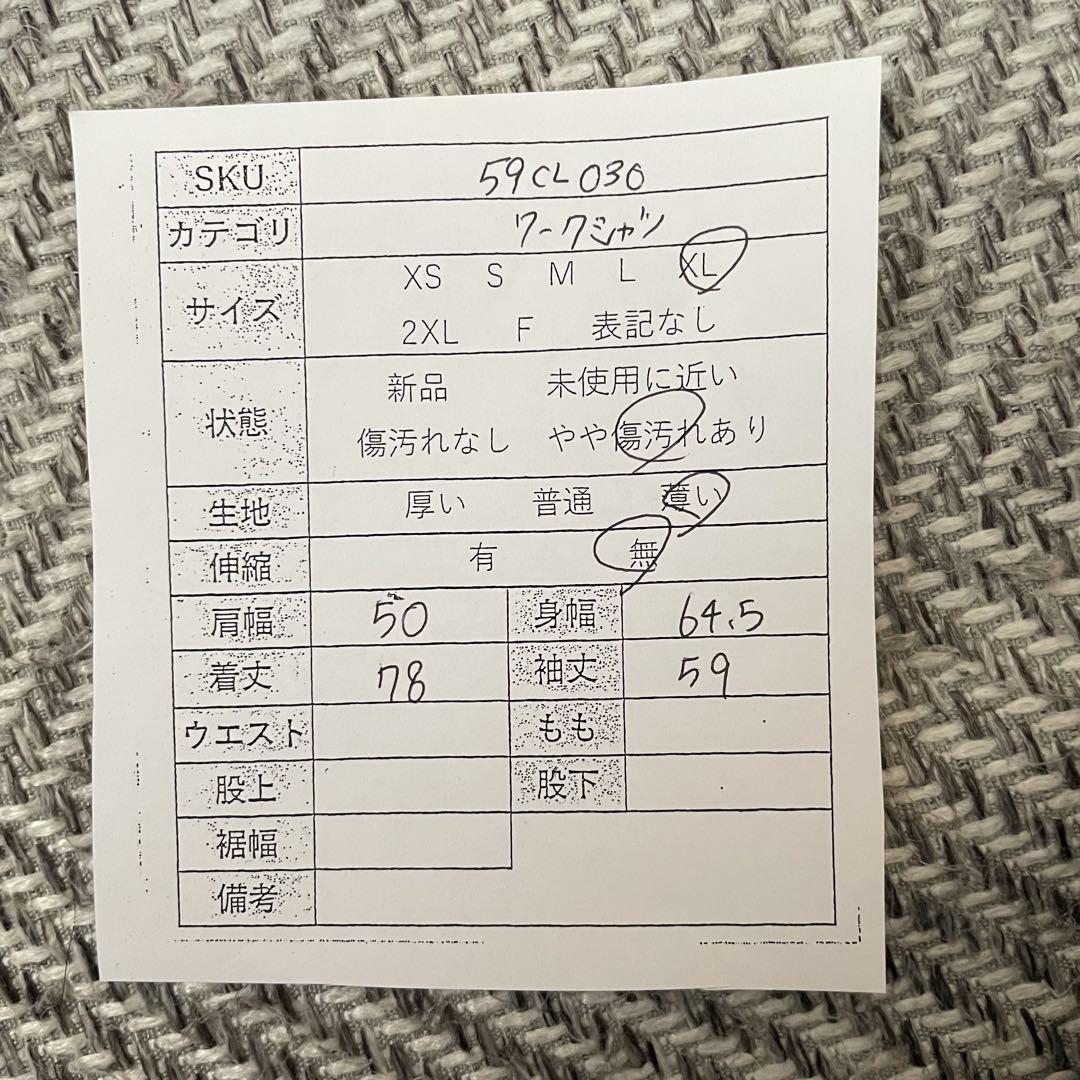 SKU 59CL030
カテゴリ ワークシャツ
サイズ XS S M L XL
2XL F 表記なし
状態 新品 未使用に近い
傷汚れなし やや傷汚れあり
生地 厚い 普通 薄い
伸縮 有 無
肩幅 50 身幅 64.5
着丈 78 袖丈 59
ウエスト もも
股上 股下
裾幅
備考